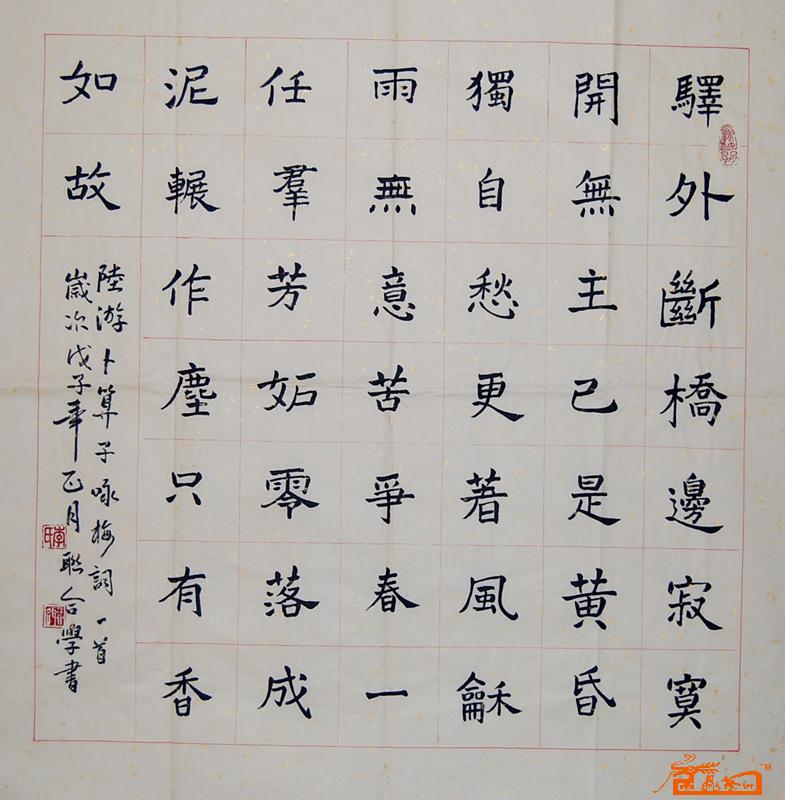 驛外斷橋邊寂寞
開無主已是黃昏
獨自愁更著風龢
雨無意苦爭春一
任羣芳妬零落成
泥輾作塵只有香
如故
陸游卜算子咏梅詞一首
歲次戊子年正月聯合學書